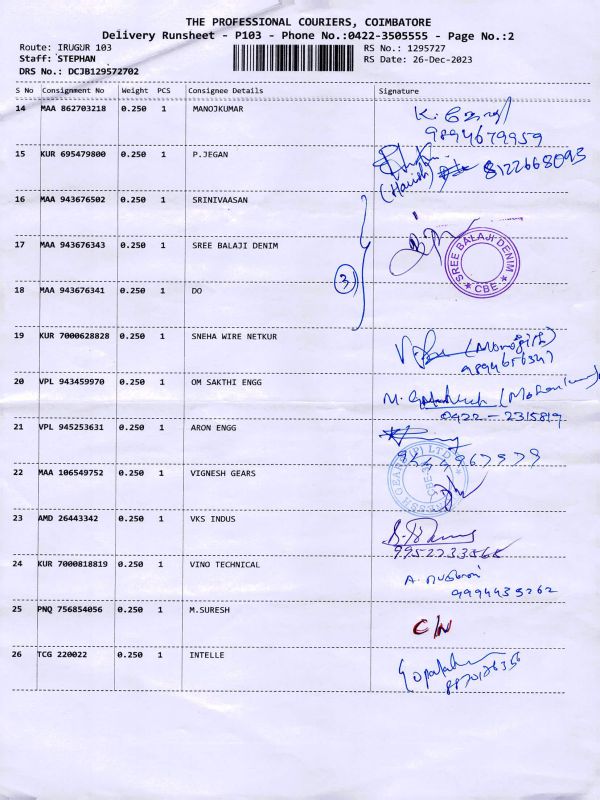 THE PROFESSIONAL COURIERS, COIMBATORE
Delivery Runsheet - P103 - Phone No.:0422-3505555 - Page No.:2
Route: IRUGUR 103
RS No.: 1295727
Staff: STEPHAN
RS Date: 26-Dec-2023
DRS No.: DCJB129572702
S No Consignment No Weight PCS Consignee Details Signature
14 MAA 862703218 0.250 1 MANOJKUMAR
9894679959
15 KUR 695479800 0.250 1 P.JEGAN
(Harish) 8122668093
16 MAA 943676502 0.250 1 SRINIVAASAN
17 MAA 943676343 0.250 1 SREE BALAJI DENIM
SREE BALAJI DENIM
★ CBE ★
3
18 MAA 943676341 0.250 1 DO
19 KUR 7000628828 0.250 1 SNEHA WIRE NETKUR
20 VPL 943459970 0.250 1 OM SAKTHI ENGG
0422-2315819
21 VPL 945253631 0.250 1 ARON ENGG
22 MAA 106549752 0.250 1 VIGNESH GEARS
23 AMD 26443342 0.250 1 VKS INDUS
24 KUR 7000818819 0.250 1 VINO TECHNICAL
9994435262
25 PNQ 756854056 0.250 1 M.SURESH
C/N
26 TCG 220022 0.250 1 INTELLE